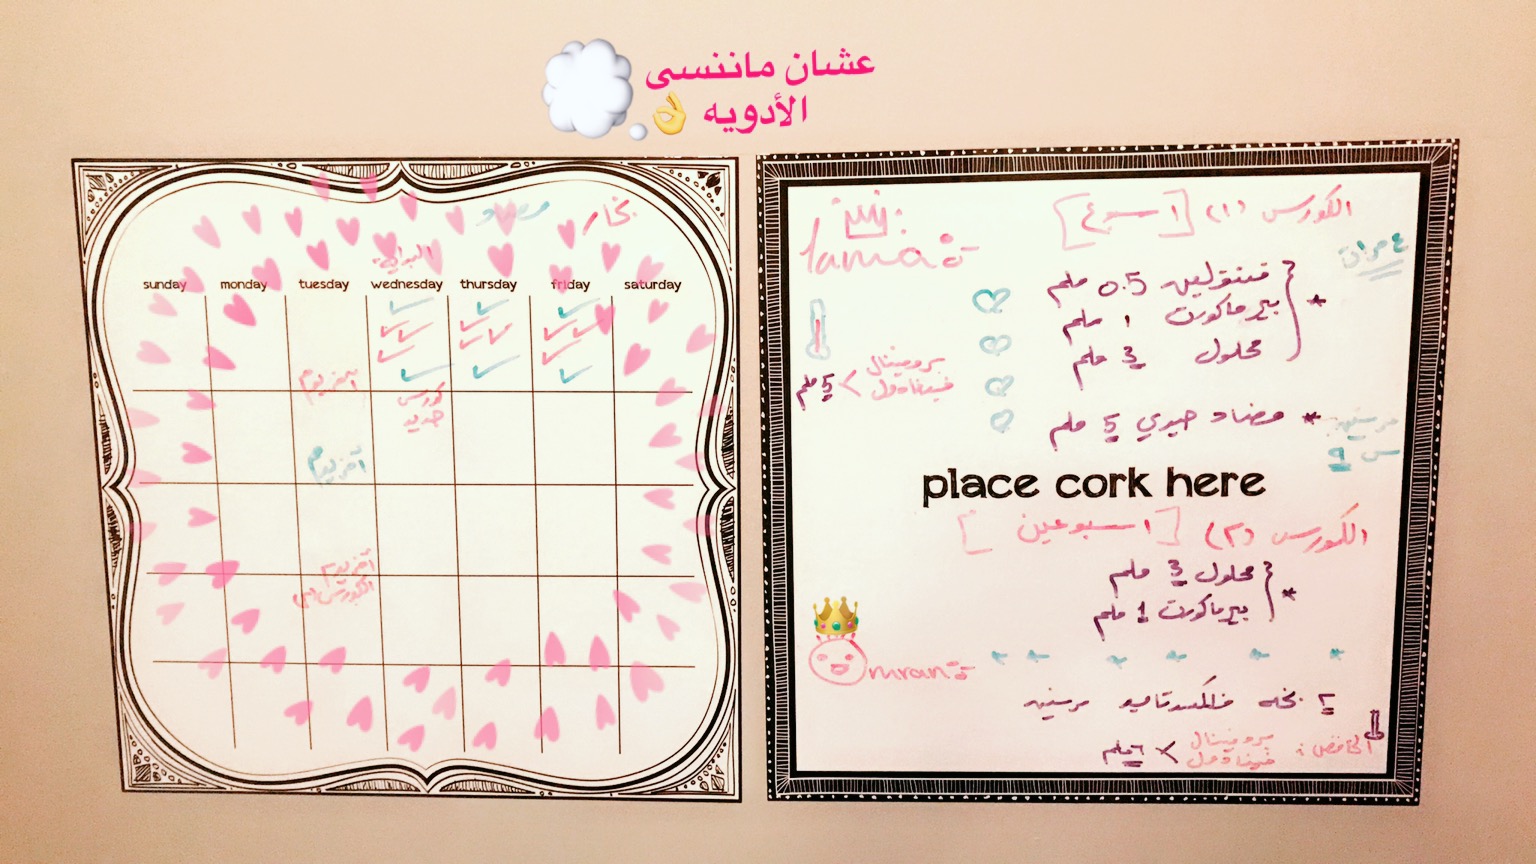 عشان ماننسى
الأدويه
بخار
مضاد
البداية
sunday monday tuesday wednesday thursday friday saturday
آخر يوم
كورس
جديد
آخر يوم
آخر يوم
الكورس (١)
الكورس (١) [اسبوع]
lama
٤ مرات
فنتولين 0.5 ملم
بيرماكورت ١ ملم
محلول 3 ملم
بروفينال
فيفادول
5 ملم
مضاد حيوي 5 ملم
مرتين:
س 9
place cork here
الكورس (٢) [اسبوعين]
محلول 3 ملم
بيرماكورت 1 ملم
omran
2 بخه فلكسوتايد مرتين
الخافض:
بروفينال
فيفادول
٦ ملم